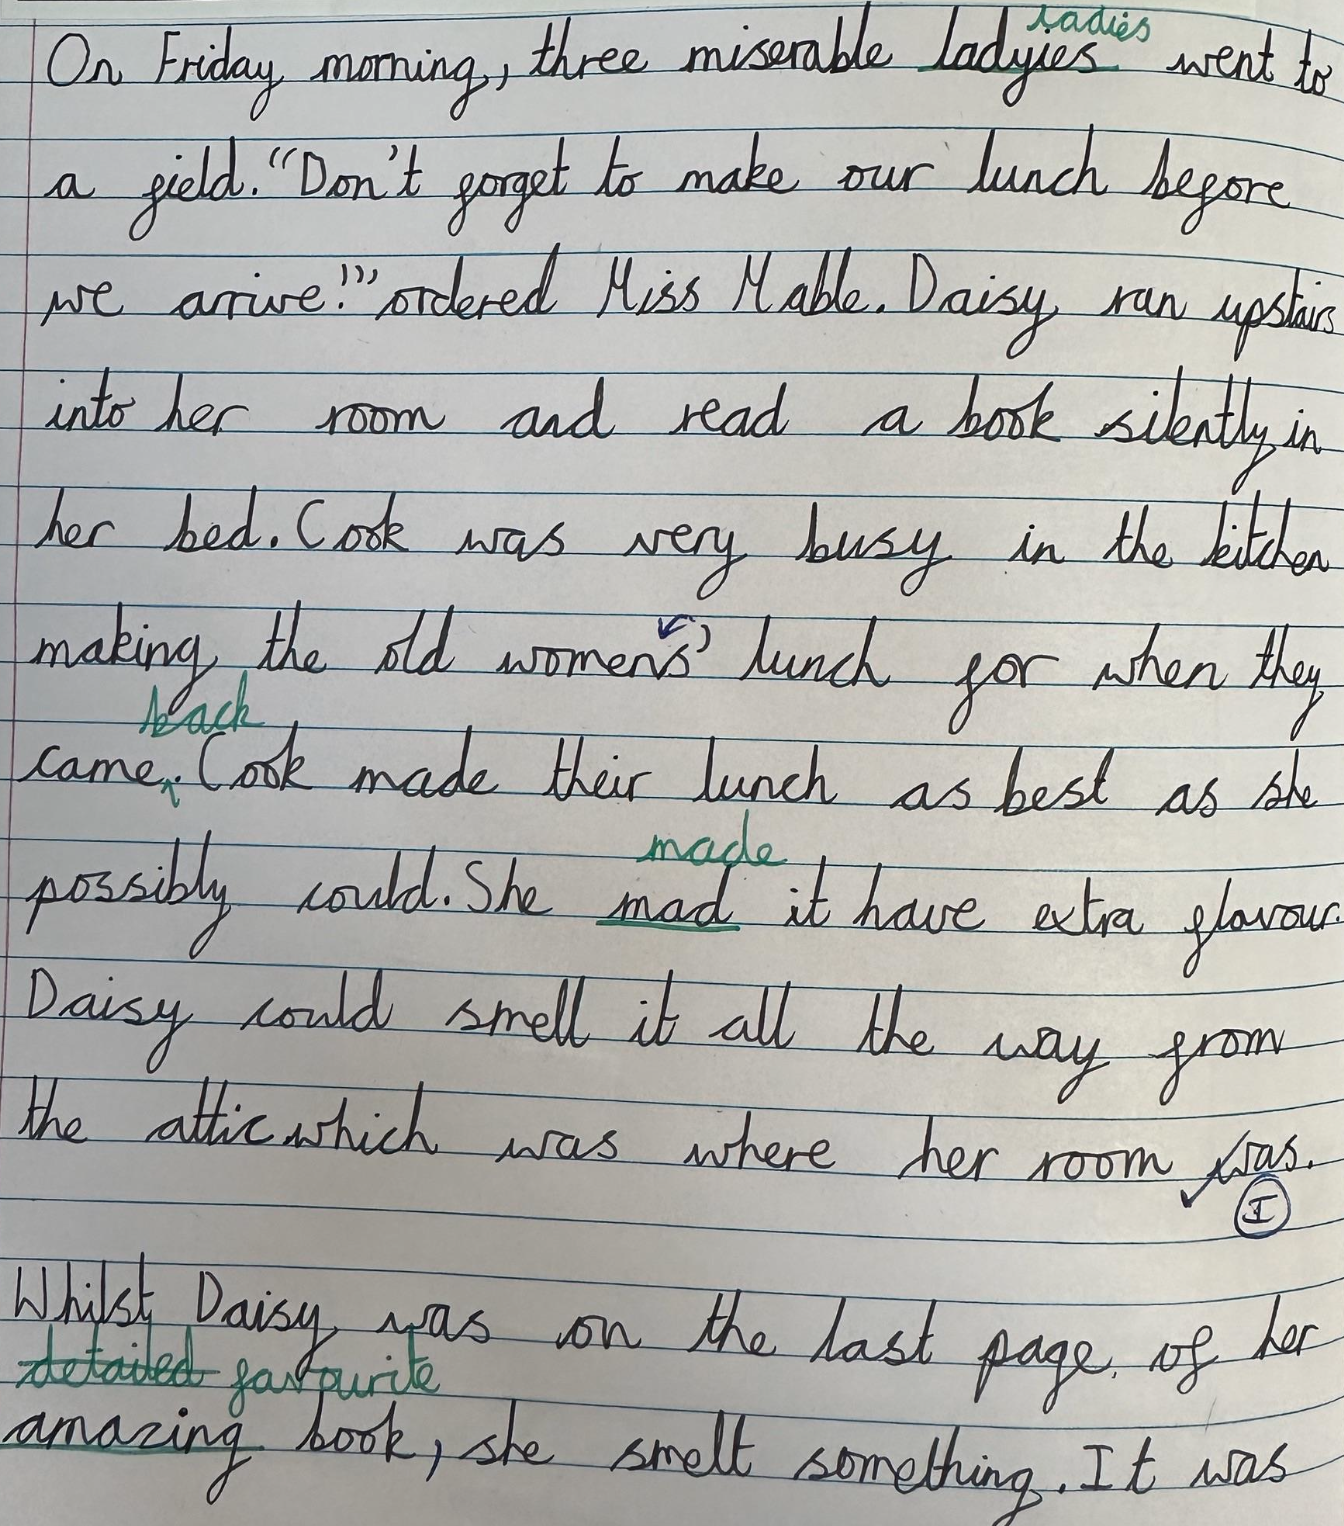 ladies
On Friday morning, three miserable ladyies went to
a field. "Don't forget to make our lunch before
we arrive!" ordered Miss Mable. Daisy ran upstairs
into her room and read a book silently in
her bed. Cook was very busy in the kitchen
making the old womens' lunch for when they
back
came. Cook made their lunch as best as she
made
possibly could. She mad it have extra flavour.
Daisy could smell it all the way from
the attic which was where her room was.
I
Whilst Daisy was on the last page of her
detailed favourite
amazing book, she smelt something. It was